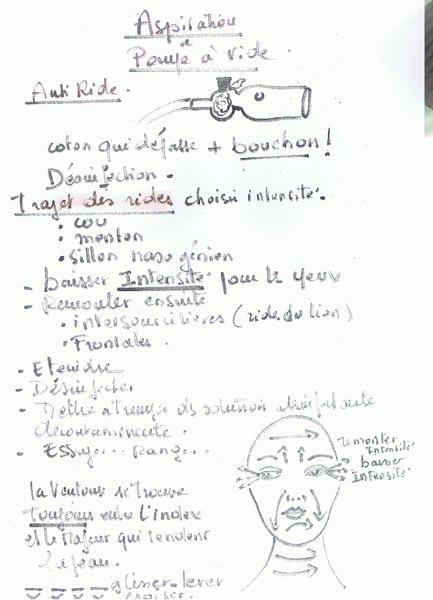 Aspiration
e
Pompe à vide.
Anti Ride.
coton qui dépasse + bouchon !
Désinfection.
Trajet des rides choisir intensité.
• cou
• menton
• sillon naso génien
- baisser Intensité pour les yeux
- Remonter ensuite
• intersourcilières (ride du lion)
• Frontales.
- Eteindre
- Désinfecter
- Mettre à tremper ds solution désinfectante
décontaminante.
- Essuyer... Ranger...
remonter
Intensité
baisser
Intensité
la Ventouse se trouve
toujours entre l'index
et le Majeur qui tendent
la peau.
glisser-lever